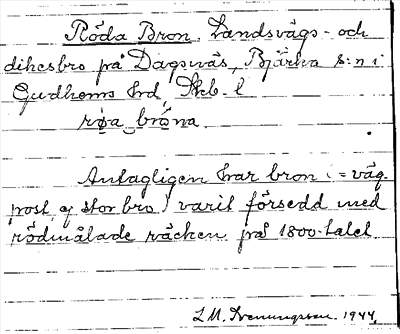 Röda Bron. Landsvägs- och
dikesbro på Dagsnäs, Bjärka s:n i
Gudhems hrd, Skb. l
røa brǿna.
Antagligen har bron (= väg
post, ej stor bro) varit försedd med
rödmålade räcken på 1800-talet.
L. M. Svenungsson. 1944.